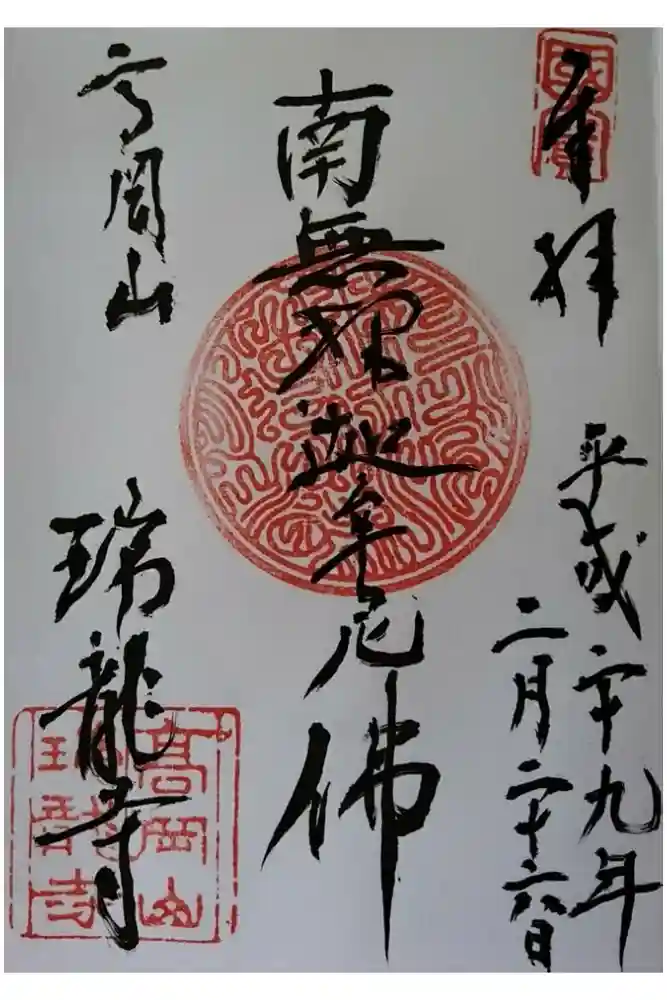 奉拝
平成二十九年
二月二十六日
國寶
南無釈迦牟尼佛
高岡山
瑞龍寺
高岡山
瑞龍寺